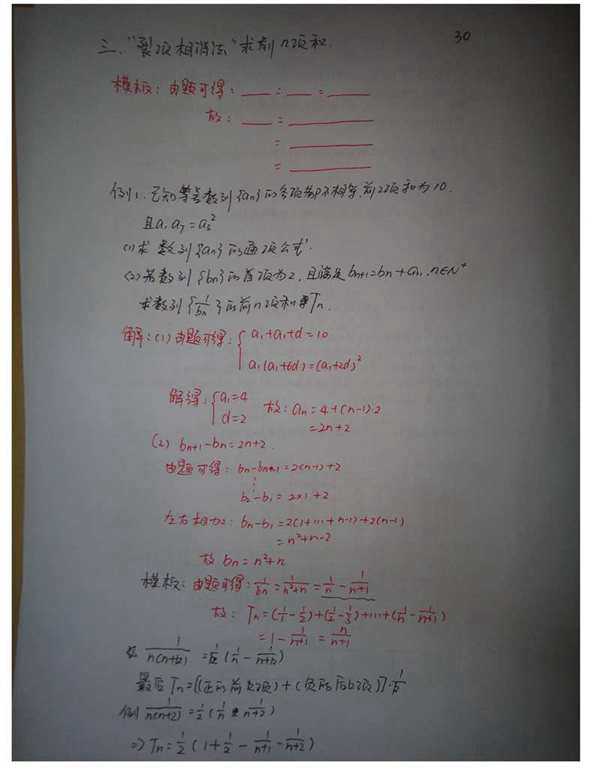 三、"裂项相消法"求前n项和. 30
模板: 由题可得: ___ = ___ = ___
故: ___ = ___
= ___
= ___
例1. 已知等差数列{an}的各项都不相等, 前2项和为10.
且a₁a₇=a₃²
(1) 求数列{an}的通项公式.
(2) 若数列{bn}的首项为2, 且满足bn+1=bn+an, n∈N⁺
求数列{1/bn}的前n项和Tn.
解: (1) 由题可得: {a₁+a₁+d=10
a₁(a₁+6d)=(a₁+2d)²
解得: {a₁=4 故: an=4+(n-1)·2
d=2 =2n+2
(2) bn+1-bn=2n+2.
由题可得: bn-bn-1=2(n-1)+2
⋮
b₂-b₁=2×1+2
左右相加: bn-b₁=2(1+...+n-1)+2(n-1)
=n²+n-2
故 bn=n²+n
模板: 由题可得: 1/bn=1/(n²+n)=1/n-1/(n+1)
故: Tn=(1/1-1/2)+(1/2-1/3)+...+(1/n-1/(n+1))
=1-1/(n+1)=n/(n+1)
1/(n(n+b))=1/b(1/n-1/(n+b))
最后Tn=[(正的前b项)+(负的后b项)]·1/b
例 1/(n(n+2))=1/2(1/n-1/(n+2))
⇒Tn=1/2(1+1/2-1/(n+1)-1/(n+2))